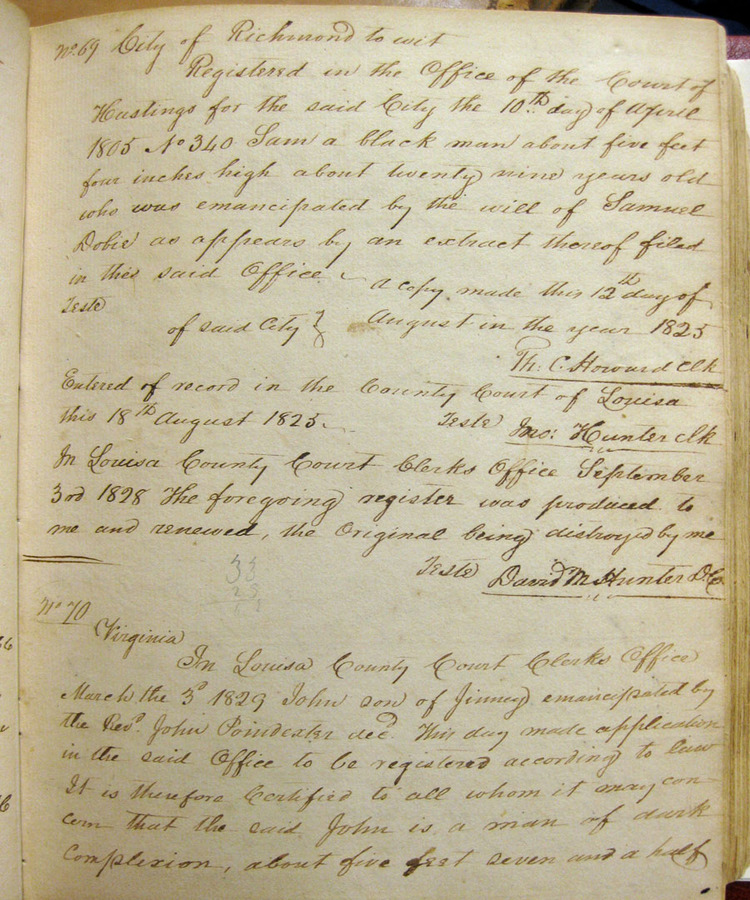 No. 69 City of Richmond to wit
Registered in the Office of the Court of
Hustings for the said City the 10th day of April
1805 No 340 Sam a black man about five feet
four inches high about twenty nine years old
who was emancipated by the will of Samuel
Dobie as appears by an extract thereof filed
in this said Office
a copy made this 12th day of
Teste
of said City } August in the year 1825
Th: C. Howard clk
Entered of record in the County Court of Louisa
this 18th August 1825.
Teste Jno: Hunter clk
In Louisa County Court Clerks Office September
3rd 1828 The foregoing register was produced to
me and renewed, the Original being distroyed by me
Teste David M Hunter D.C.
33
No 70
Virginia
In Louisa County Court Clerks Office
March the 3d 1829 John son of Jinney emancipated by
the Revd. John Poindexter decd. This day made application
in the said Office to be registered according to law
It is therefore Certified to all whom it may con-
cern that the said John is a man of dark
Complexion, about five feet seven and a half